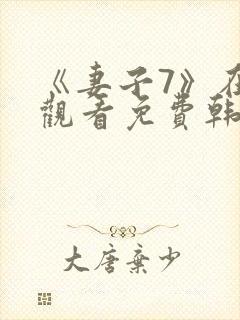 《妻子7》在
觀看免費韓
大唐棄少